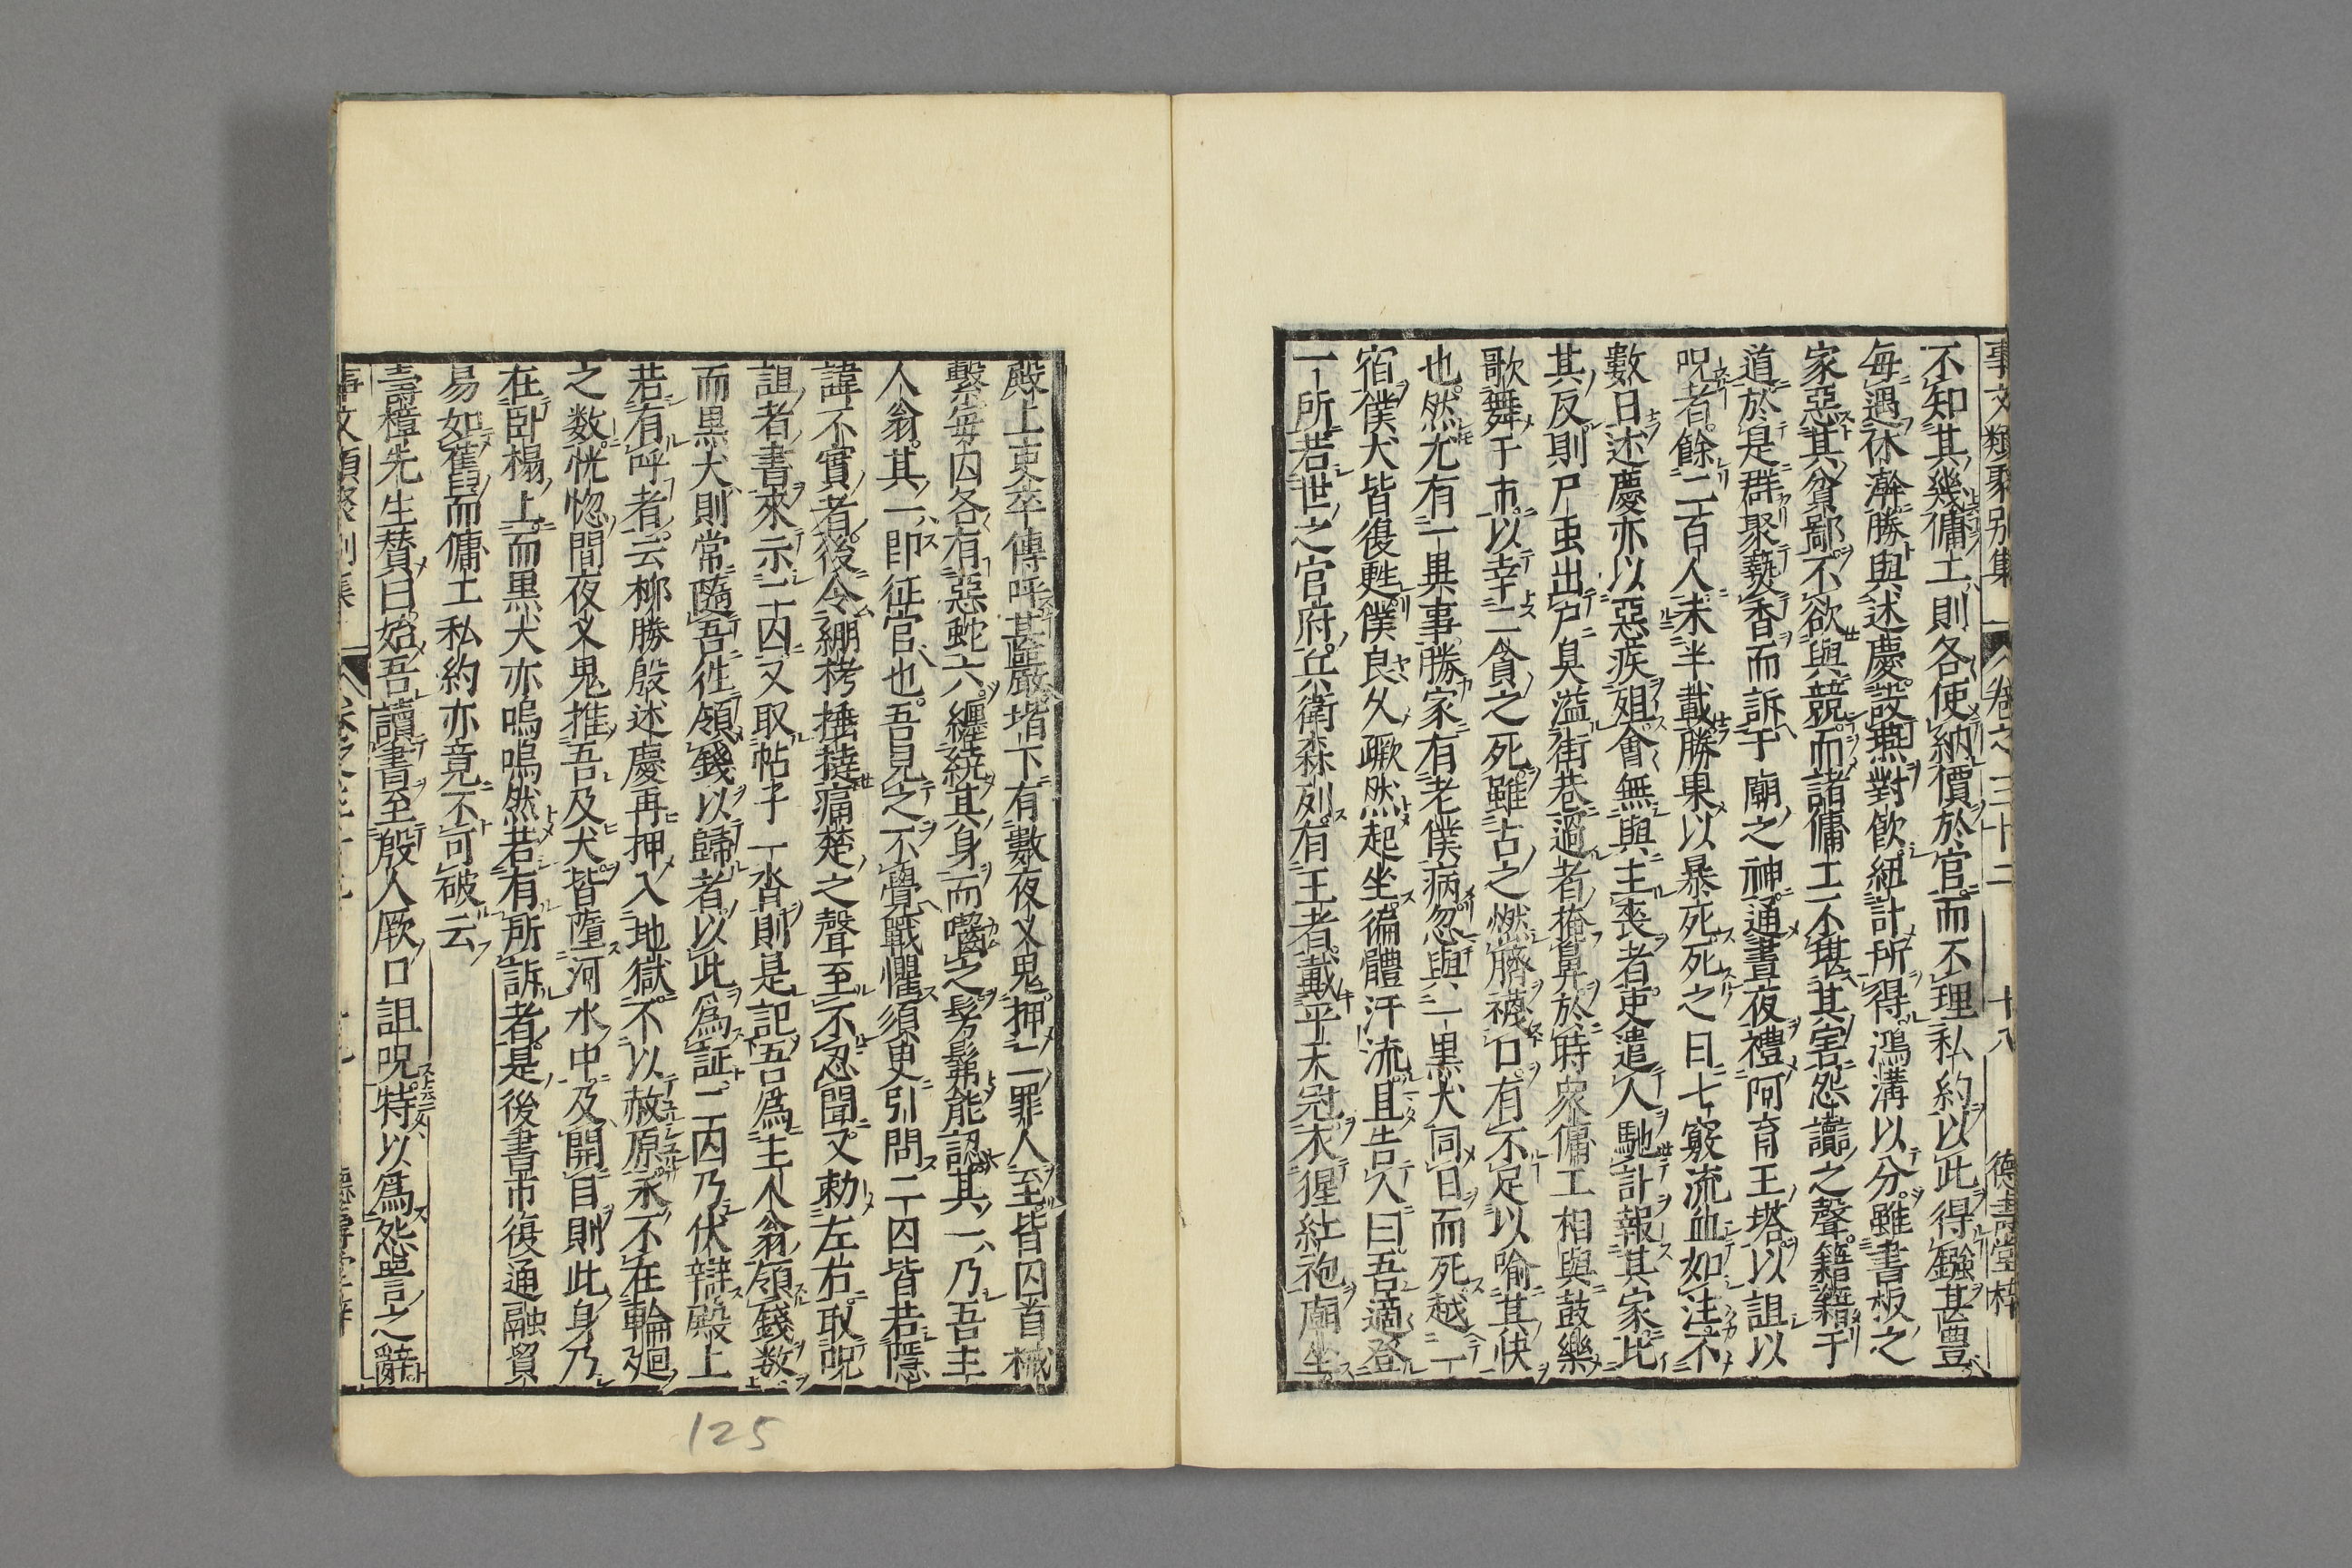 事文類聚別集 卷之三十二 十八 德壽堂梓
不知其幾傭工則各使納價於官而不理私約以此得鏹甚豊
每遇休澣勝與述慶設燕對飲紐計所得鴻溝以分雖書板之
家惡其貧鄙不欲與競而諸傭工不堪其害怨讟之聲籍籍于
道於是群聚爇香而訴于廟之神通晝夜禮阿育王塔以詛以
呪者餘二百人未半載勝果以暴死死之日七竅流血如注不
數日述慶亦以惡疾殂會無與主喪者吏遣人馳訃報其家比
其反則尸虫出戶臭溢街巷過者掩鼻於時衆傭工相與鼓樂
歌舞于市以幸二貪之死雖古之燃臍襪口有不足以喻其快
也然尤有一異事勝家有老僕病忽與一黑犬同日而死越一
宿僕犬皆復甦僕良久蹶然起坐徧體汗流且告人曰吾適登
一所若世之官府兵衛森列有王者戴平天冠衣猩紅袍廟坐
殿上吏卒傳呼甚嚴堦下有數夜叉鬼押二罪人至皆囚首械
繫每囚各有惡蛇六纏繞其身而嚙之髣髴能認其一乃吾主
人翁其一即征官也吾見之不覺戰懼須臾引問二囚皆若隱
諱不實者後令綳栲捶撻痛楚之聲至不忍聞又勅左右取呪
詛者書來示二囚又取帖子一沓則是記吾為主人翁領錢数
而黒犬則常隨吾徃領錢以歸者以此為証二囚乃伏辯殿上
若有呼者云柳勝殷述慶再押入地獄不以赦原永不在輪廻
之数恍惚間夜叉鬼推吾及犬皆墮河水中及開目則此身乃
在卧榻上而黒犬亦嗚嗚然若有所訴者是後書市復通融貿
易如舊而傭工私約亦竟不可破云
壽樟先生賛曰始吾讀書至殷人厥口詛呪特以為怨詈之辭
事文類聚別集